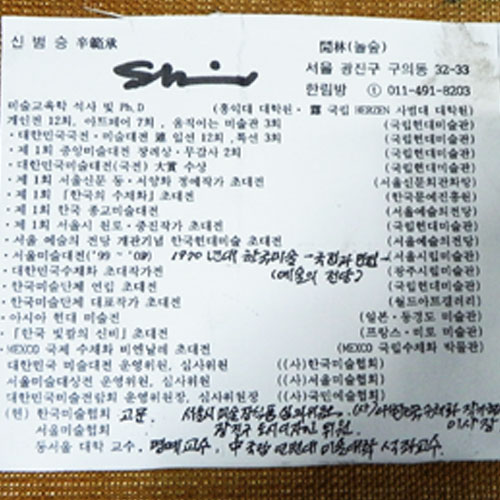 신 범 승 辛範承 開林(놀숲)
Shin 서울 광진구 구의동 32-33
한림방 ① 011-491-8203
미술교육학 석사 및 Ph.D (홍익대 대학원· 露 국립 HERZEN 사범대 대학원)
개인전 12회, 아트페어 7회, 움직이는 미술관 3회 (국립현대미술관)
·대한민국국전·미술대전 連 입선 12회, 특선 3회 (국립현대미술관)
·제 1회 중앙미술대전 장려상·무감사 2회 (국립현대미술관)
·대한민국미술대전(국전) 大賞 수상 (국립현대미술관)
·제 1회 서울신문 동·서양화 정예작가 초대전 (서울신문회관화랑)
·제 1회 『한국의 수채화』 초대전 (한국문예진흥원)
·제 1회 한국 종교미술대전 (서울예술의전당)
·제 1회 서울시 원로·중진작가 초대전 (국립현대미술관)
·서울 예술의 전당 개관기념 한국현대미술 초대전 (서울예술의전당)
·서울미술대전('99 ~ ) 1970 년대 한국미술 (서울시립미술관)
·대한민국수채화 초대작가전 (예술의 전당) (광주시립미술관)
·한국미술단체 연립 초대전 (국립현대미술관)
·한국미술단체 대표작가 초대전 (월드아트갤러리)
·아시아 현대 미술전 (일본·동경도 미술관)
·『한국 빛깔의 신비』 초대전 (프랑스·미로 미술관)
·MEXCO 국제 수채화 비엔날레 초대전 (MEXCO 국립수채화 박물관)
대한민국 미술대전 운영위원, 심사위원 ((사)한국미술협회)
서울미술대상전 운영위원, 심사위원 ((사)서울미술협회)
대한민국미술전람회 운영위원장, 심사위원장 ((사)국민예술협회)
(현) 한국미술협회 고문, 서울시 미술장식품 심의위원
서울미술협회 광진구 도시디자인 위원, 이사장
동서울 대학 교수, 명예교수, 中国 미술대학 석좌교수.